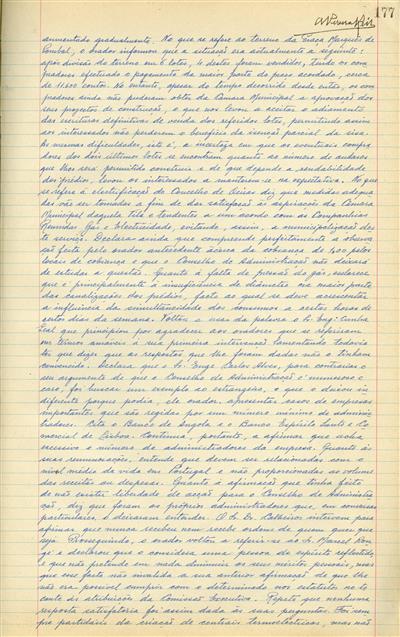 177
aumentado gradualmente. No que se refere ao terreno da Praça Marquês de
Pombal, o orador informou que a situação era actualmente a seguinte:
após divisão do terreno em 6 lotes, 4 destes foram vendidos, tendo os com
pradores efectuado o pagamento da maior parte do preço acordado, cerca
de 11.600 contos. No entanto, apesar do tempo decorrido desde então, os com
pradores ainda não puderam obter da Câmara Municipal a aprovação dos
seus projectos de construção, o que nos levou a aceitar o adiamento
das escrituras definitivas de venda dos referidos lotes, permitindo assim
aos interessados não perderem o benefício da isenção parcial de sisa.
As mesmas dificuldades, isto é, a incerteza em que os eventuais compra
dores dos dois últimos lotes se encontram quanto ao número de andares
que lhes será permitido construir e de que depende a rendabilidade
dos prédios, levou os interessados a manterem-se na expectativa. No que
se refere à electrificação do Concelho de Oeiras diz que medidas adequa
das vão ser tomadas a fim de dar satisfação às aspirações da Câmara
Municipal daquela vila e tendentes a um acordo com as Companhias
Reunidas Gás e Electricidade, evitando, assim, a municipalização des
te serviço. Declara ainda que compreende perfeitamente a observa
ção feita pelo orador antecedente acerca da cobrança de $00 pelos
locais de cobrança e que o Conselho de Administração não deixará
de estudar a questão. Quanto à falta de pressão do gás, esclarece
que é principalmente à insuficiência de diâmetro na maior parte
das canalizações dos prédios, facto ao qual se deve acrescentar
a influência da simultaneidade dos consumos a certas horas de
certos dias da semana. Voltou a usar da palavra o Sr. Eng. Cunha
Leal que principiou por agradecer aos oradores que se referiram
em termos amáveis à sua primeira intervenção lamentando todavia
ter que dizer que as respostas que lhe foram dadas não o tinham
convencido. Declara que o Sr. Engº Carlos Alves, para contrariar o
seu argumento de que o Conselho de Administração é numeroso e
caro, foi buscar um exemplo ao estrangeiro, o que o deixou in
diferente porque podia, ele orador, apresentar casos de empresas
importantes que são regidas por um número mínimo de adminis
tradores. Cita o Banco de Angola e o Banco Espírito Santo e Co
mercial de Lisboa. Continua, portanto, a afirmar que acha
excessivo o número de administradores da empresa. Quanto às
suas remunerações, entende que devem ser relacionadas com o
nível médio de vida em Portugal e não proporcionadas ao volume
das receitas ou despesas. Quanto à afirmação que tinha feito
de não existir liberdade de acção para o Conselho de Administra
ção, diz que foram os próprios administradores que, em conversas
particulares, o deixaram entender. O Sr. Dr. Calheiros interveio para
afirmar que nunca recebeu nem recebe ordens de quem quer que
seja. Prosseguindo, o orador voltou a referir-se ao Sr. Marcel
e declarou que o considera uma pessoa de espírito esclarecido
e que não pretende em nada diminuir os seus méritos pessoais, mas
que esse facto não invalida a sua anterior afirmação de que lhe
não era possível cumprir com o determinado nos estatutos no to
cante às atribuições da Comissão Executiva. Repete que nenhuma
resposta satisfatória foi assim dada às suas perguntas. Foi sem
pre partidário da criação de centrais termoeléctricas, mas não